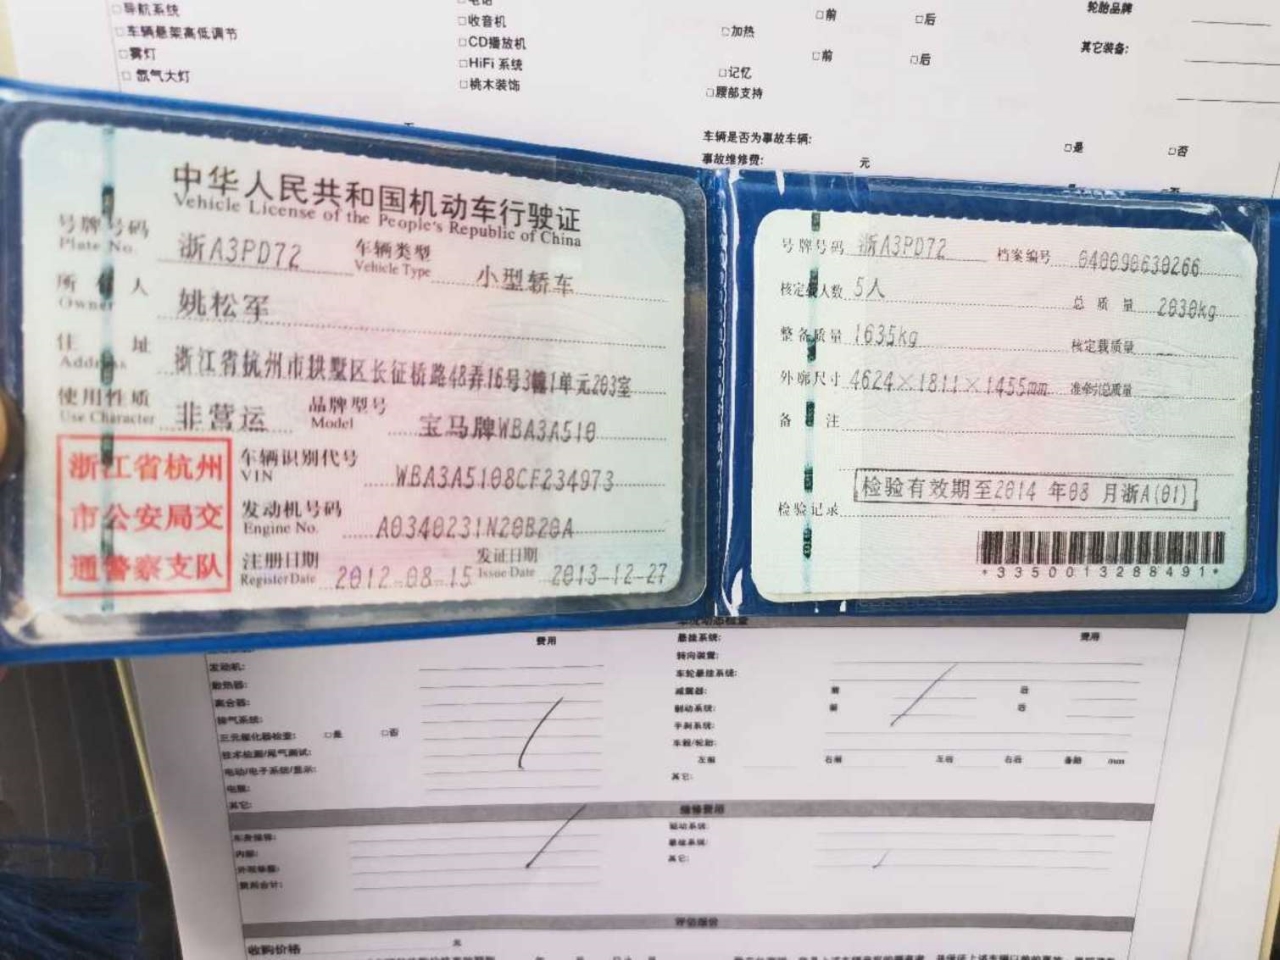 □导航系统
□车辆悬架高低调节
□雾灯
□氙气大灯
□电话
□收音机
□CD播放机
□HiFi 系统
□桃木装饰
□前 □后
□加热
□前 □后
□记忆
□腰部支持
轮胎品牌
其它装备:
车辆是否为事故车辆: □是 □否
事故维修费: 元
中华人民共和国机动车行驶证
Vehicle License of the People's Republic of China
号牌号码 浙A3PD72 车辆类型 小型轿车
Plate No. Vehicle Type
所有人 姚松军
Owner
住址 浙江省杭州市拱墅区长征桥路48弄16号3幢1单元203室
Address
使用性质 非营运 品牌型号 宝马牌WBA3A510
Use Character Model
浙江省杭州
市公安局交
通警察支队
车辆识别代号 WBA3A5108CF234973
VIN
发动机号码 A0340231N20B20A
Engine No.
注册日期 2012-08-15 发证日期 2013-12-27
Register Date Issue Date
号牌号码 浙A3PD72 档案编号 040090630266
核定载人数 5人 总质量 2030kg
整备质量 1635kg 核定载质量
外廓尺寸 4624×1811×1455mm 准牵引总质量
备注
检验记录 检验有效期至2014 年08 月浙A(01)
*3350013288491*
费用
发动机:
散热器:
离合器:
排气系统:
三元催化器检查: □是 □否
技术检测/尾气测试:
电动/电子系统/显示:
电脑:
其它:
悬挂系统: 费用
转向装置:
车轮悬挂系统:
减震器: 前 后
制动系统: 前 后
手刹系统:
车毂/轮胎:
左前 右前 左后 右后 备胎 mm
其它:
维修费用
车身维修:
内部:
驱动系统:
悬挂系统:
其它:
评估报价
收购价格 元